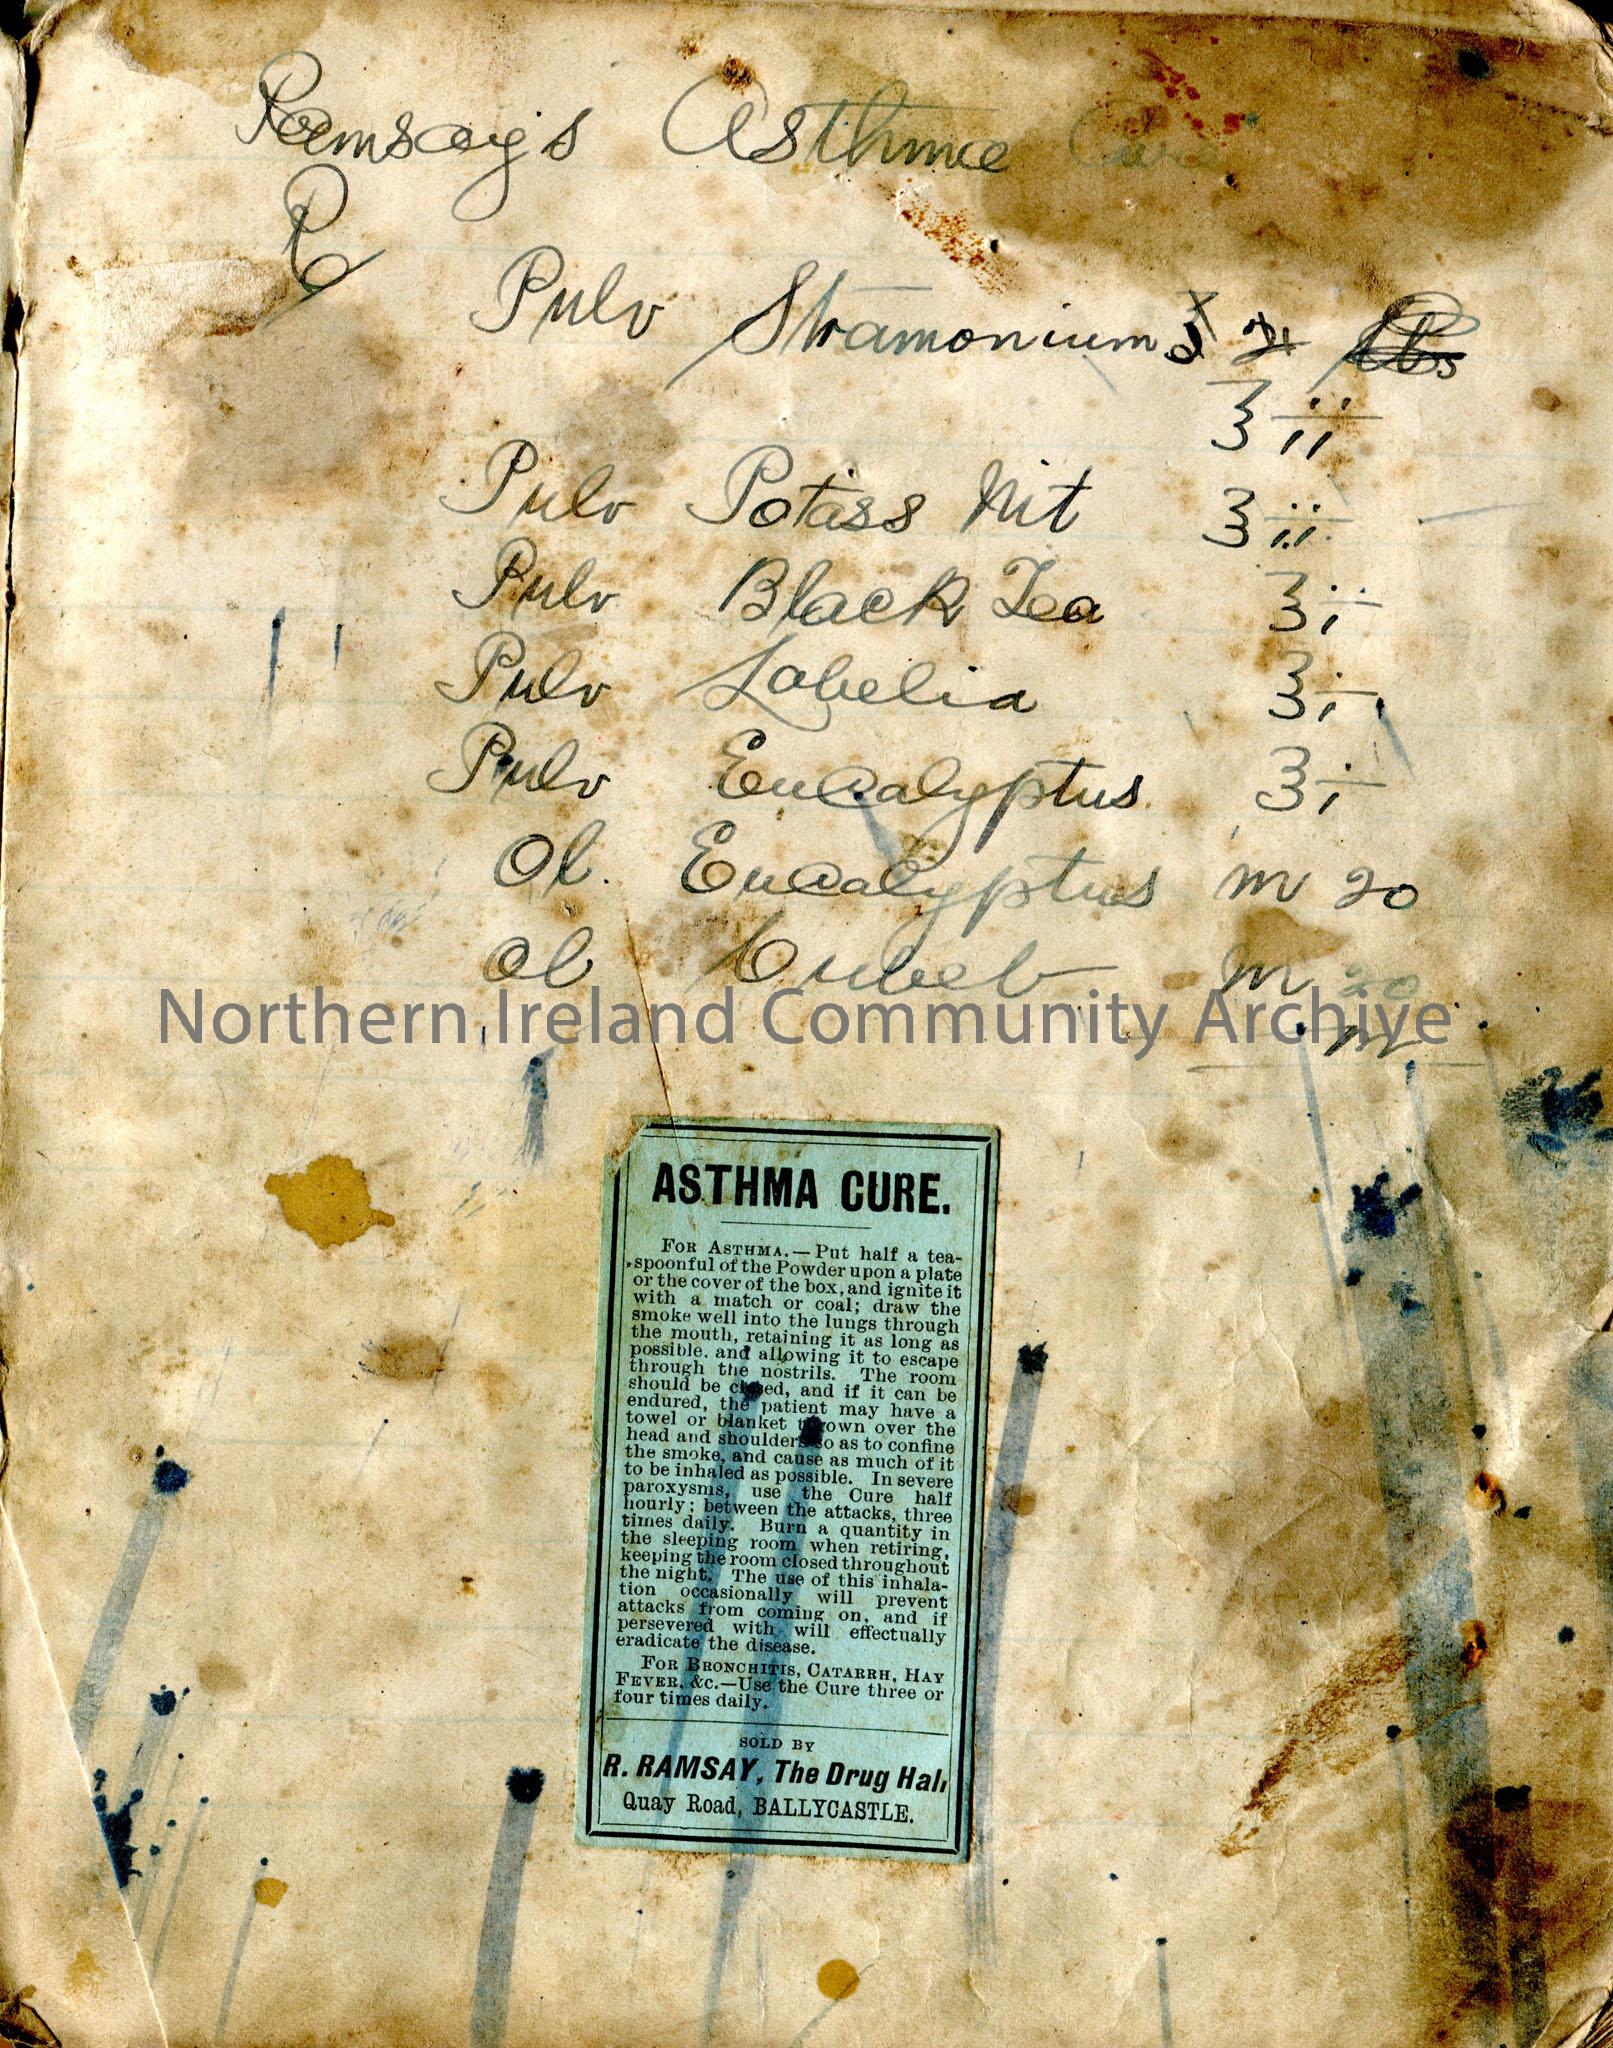 Ramsay's Asthma Cure
℞
Pulv Stramonium
ʒ ii
Pulv Potass Nit ʒ ii
Pulv Black Tea ʒ i
Pulv Lobelia ʒ i
Pulv Eucalyptus ʒ i
Ol. Eucalyptus m 20
Ol Cubeb m 20
m
Northern Ireland Community Archive
ASTHMA CURE.
FOR ASTHMA.—Put half a tea-
spoonful of the Powder upon a plate
or the cover of the box, and ignite it
with a match or coal; draw the
smoke well into the lungs through
the mouth, retaining it as long as
possible. and allowing it to escape
through the nostrils. The room
should be closed, and if it can be
endured, the patient may have a
towel or blanket thrown over the
head and shoulders so as to confine
the smoke, and cause as much of it
to be inhaled as possible. In severe
paroxysms, use the Cure half
hourly; between the attacks, three
times daily. Burn a quantity in
the sleeping room when retiring,
keeping the room closed throughout
the night. The use of this inhala-
tion occasionally will prevent
attacks from coming on, and if
persevered with, will effectually
eradicate the disease.
FOR BRONCHITIS, CATARRH, HAY
FEVER, &c.—Use the Cure three or
four times daily.
SOLD BY
R. RAMSAY, The Drug Hall
Quay Road, BALLYCASTLE.